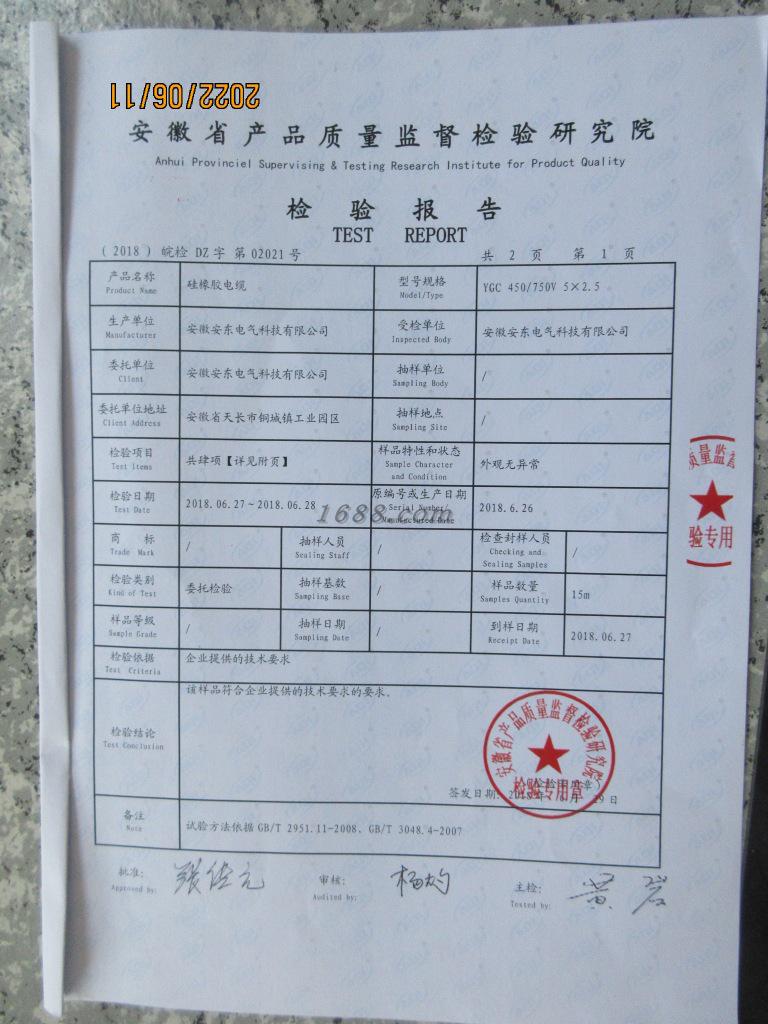 2022/06/11
安徽省产品质量监督检验研究院
Anhui Provinciel Supervising & Testing Research Institute for Product Quality
检验报告
TEST REPORT
(2018)皖检 DZ字 第02021号
共 2 页 第 1 页
产品名称
Product Name
硅橡胶电缆
型号规格
Model/Type
YGC 450/750V 5×2.5
生产单位
Manufacturer
安徽安东电气科技有限公司
受检单位
Inspected Body
安徽安东电气科技有限公司
委托单位
Client
安徽安东电气科技有限公司
抽样单位
Sampling Body
/
委托单位地址
Client Address
安徽省天长市铜城镇工业园区
抽样地点
Sampling Site
/
检验项目
Test Items
共肆项【详见附页】
样品特性和状态
Sample Character
and Condition
外观无异常
检验日期
Test Date
2018.06.27～2018.06.28
原编号或生产日期
Serial Number/
Manufactured Date
2018.6.26
1688.com
商 标
Trade Mark
/
抽样人员
Sealing Staff
/
检查封样人员
Checking and
Sealing Samples
/
检验类别
Kind of Test
委托检验
抽样基数
Sampling Base
/
样品数量
Samples Quantity
15m
样品等级
Sample Grade
/
抽样日期
Sampling Date
/
到样日期
Receipt Date
2018.06.27
检验依据
Test Criteria
企业提供的技术要求
检验结论
Test Conclusion
该样品符合企业提供的技术要求的要求。
安徽省产品质量监督检验研究院
检验专用章
签发日期:
备注
Note
试验方法依据GB/T 2951.11-2008、GB/T 3048.4-2007
批准:
Approved by:
审核:
Audited by:
杨灼
主检:
Tested by:
黄岩
质量监督
验专用